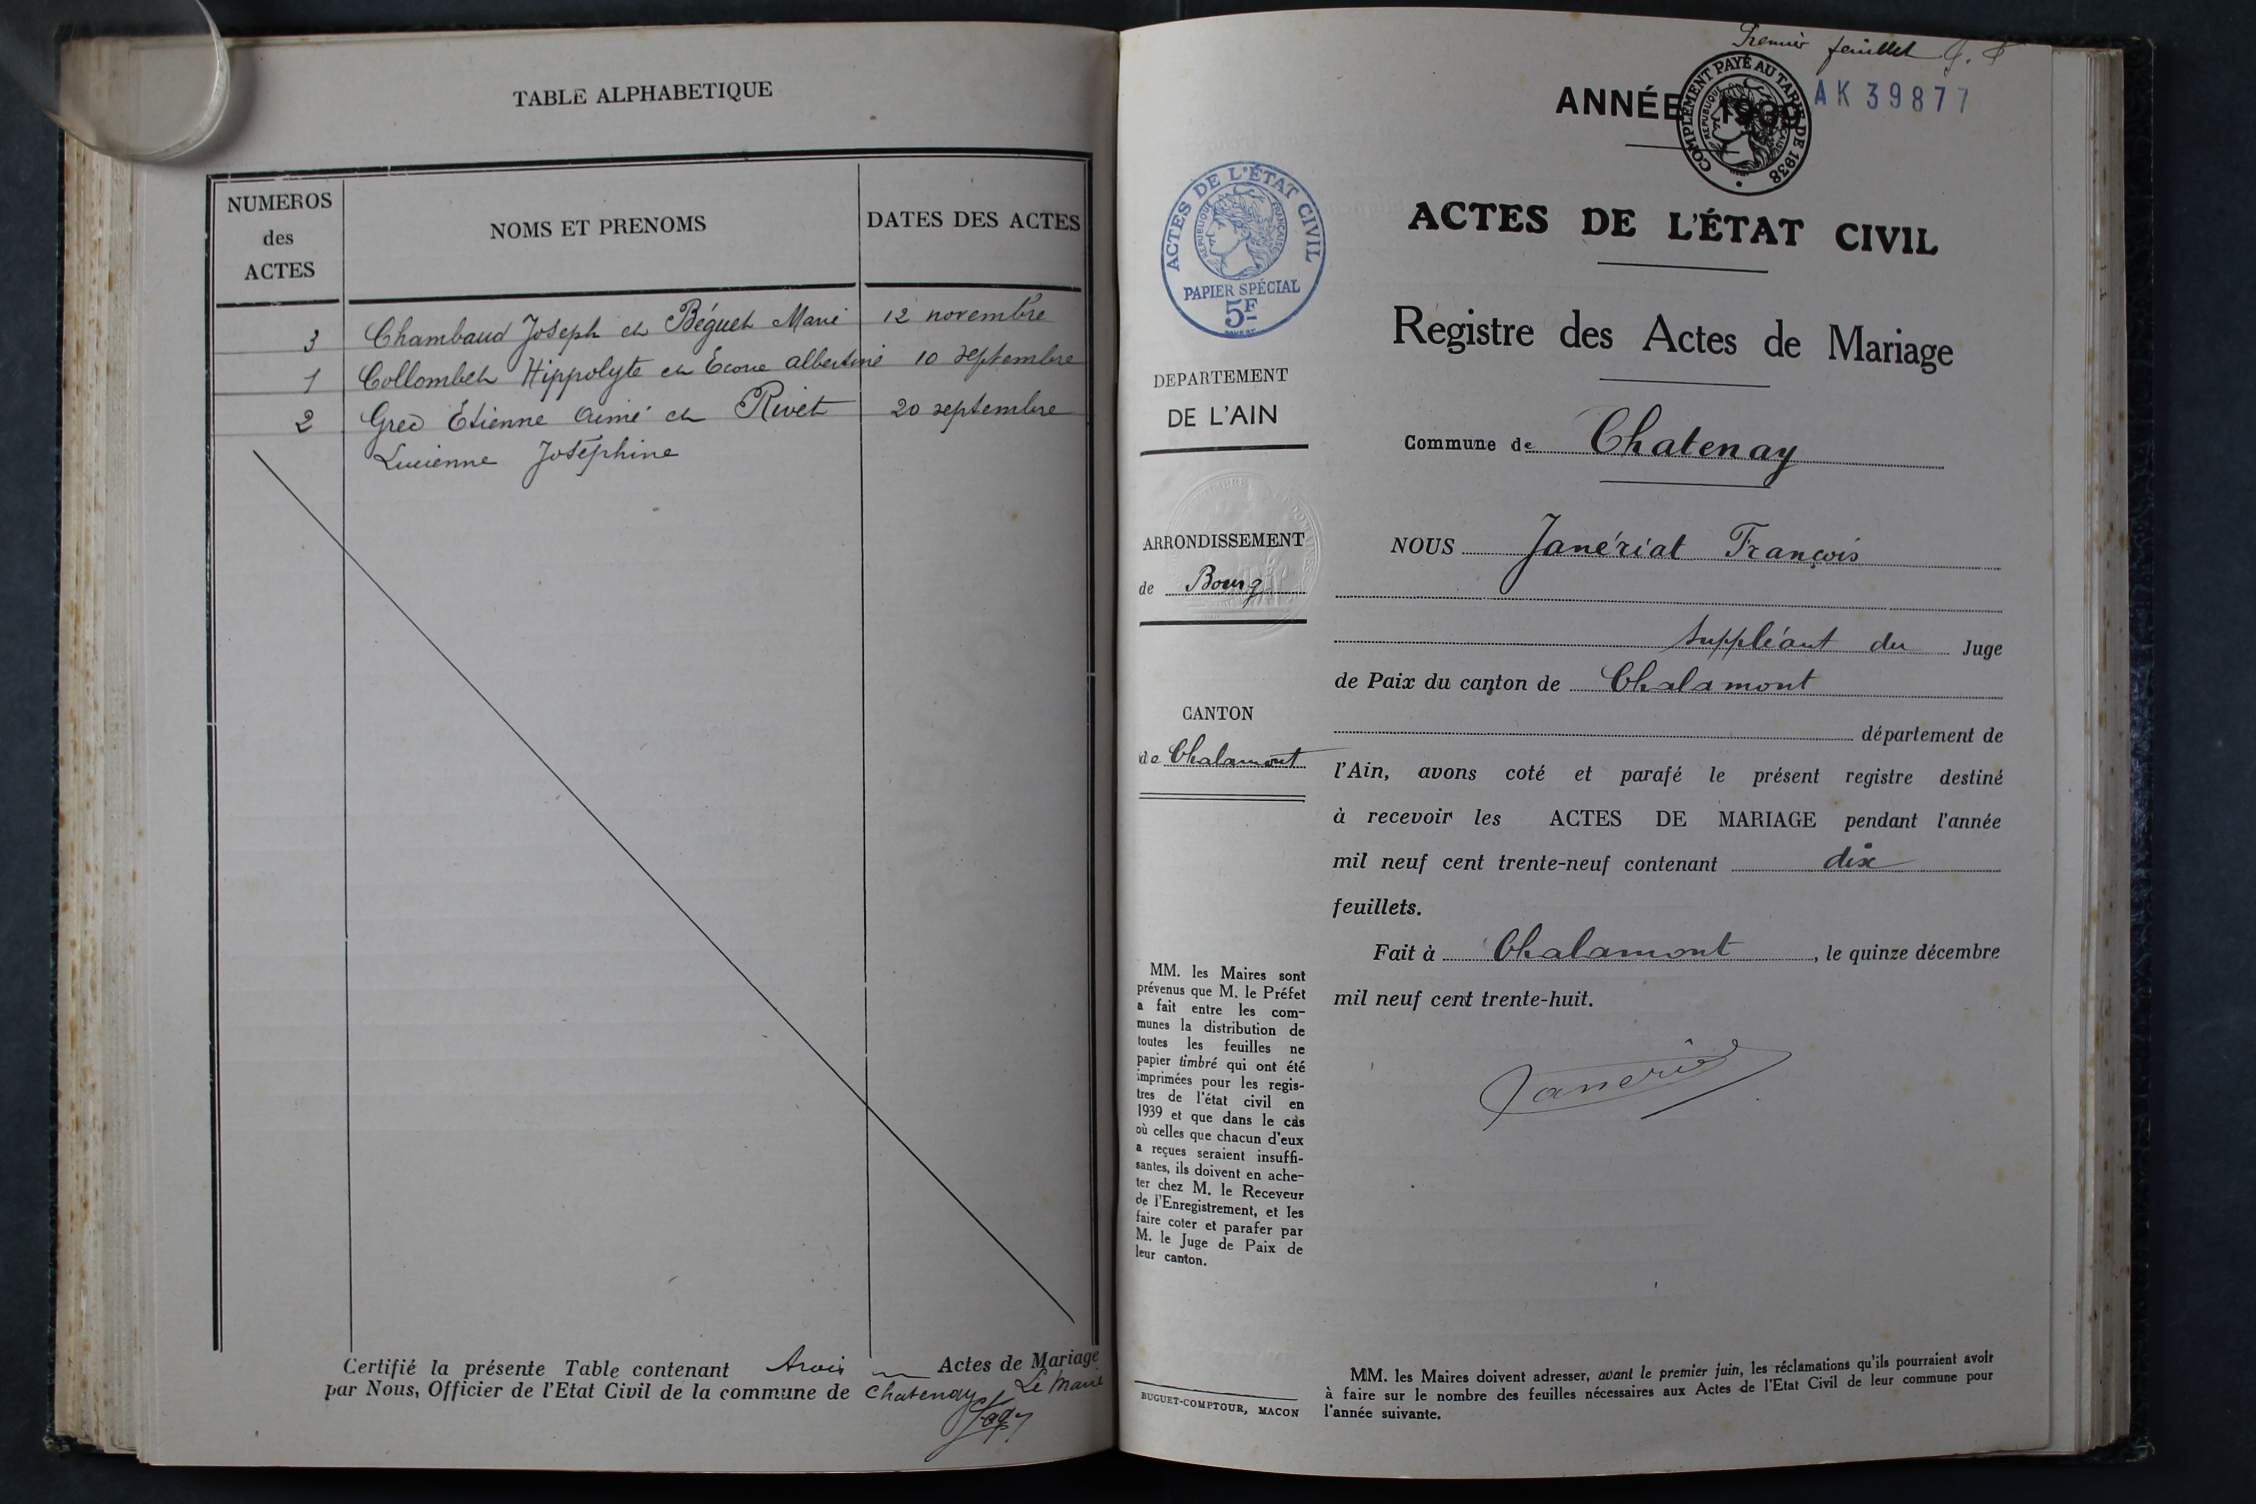 TABLE ALPHABETIQUE
NUMEROS
des
ACTES
NOMS ET PRENOMS
DATES DES ACTES
3 Chambaud Joseph et Béguet Marie 12 novembre
1 Collombet Hippolyte et Albertine 10 septembre
2 Etienne Aimé et Rivet 20 septembre
Lucienne Joséphine
Certifié la présente Table contenant trois Actes de Mariage
par Nous, Officier de l'Etat Civil de la commune de Chatenay Le Maire
Premier feuillet
ANNÉE 1939
AK 39877
COMPLÉMENT PAYÉ AU TARIF DE 1938
RÉPUBLIQUE FRANÇAISE
ACTES DE L'ÉTAT CIVIL
RÉPUBLIQUE FRANÇAISE
PAPIER SPÉCIAL
5F
DEPARTEMENT
DE L'AIN
ARRONDISSEMENT
de Bourg
CANTON
de Chalamont
MM. les Maires sont
prévenus que M. le Préfet
a fait entre les com-
munes la distribution de
toutes les feuilles ne
papier timbré qui ont été
imprimées pour les regis-
tres de l'état civil en
1939 et que dans le cas
où celles que chacun d'eux
a reçues seraient insuffi-
santes, ils doivent en ache-
ter chez M. le Receveur
de l'Enregistrement, et les
faire coter et parafer par
M. le Juge de Paix de
leur canton.
BUGUET-COMPTOUR, MACON
ACTES DE L'ÉTAT CIVIL
Registre des Actes de Mariage
Commune de Chatenay
NOUS Janériat François
Suppléant du Juge
de Paix du canton de Chalamont
département de
l'Ain, avons coté et parafé le présent registre destiné
à recevoir les ACTES DE MARIAGE pendant l'année
mil neuf cent trente-neuf contenant dix
feuillets.
Fait à Chalamont, le quinze décembre
mil neuf cent trente-huit.
MM. les Maires doivent adresser, avant le premier juin, les réclamations qu'ils pourraient avoir
à faire sur le nombre des feuilles nécessaires aux Actes de l'Etat Civil de leur commune pour
l'année suivante.